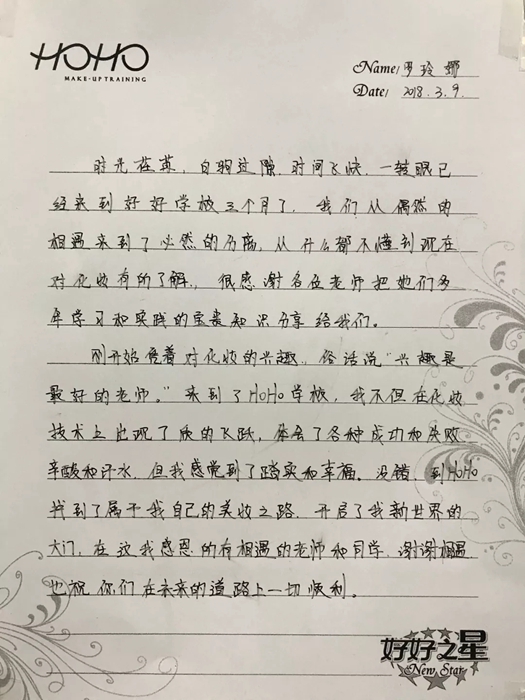 HOHO
MAKE-UP TRAINING
Name/罗玲娜
Date/ 2018.3.9.
时光荏苒，白驹过隙，时间飞快，一转眼已
经来到好好学校三个月了，我们从偶然的
相遇来到了必然的分离，从什么都不懂到现在
对化妆有的了解，很感谢各位老师把她们多
年学习和实践的宝贵知识分享给我们。
刚开始凭着对化妆的兴趣，俗话说"兴趣是
最好的老师。"来到了HOHO学校，我不但在化妆
技术上出现了质的飞跃，体会了各种成功和失败
辛酸和汗水，但我感觉到了踏实和幸福。没错，到HOHO
找到了属于我自己的美妆之路，开启了我新世界的
大门，在这我感恩的有相遇的老师和同学，谢谢相遇
也祝你们在未来的道路上一切顺利。
好好之星
New Star